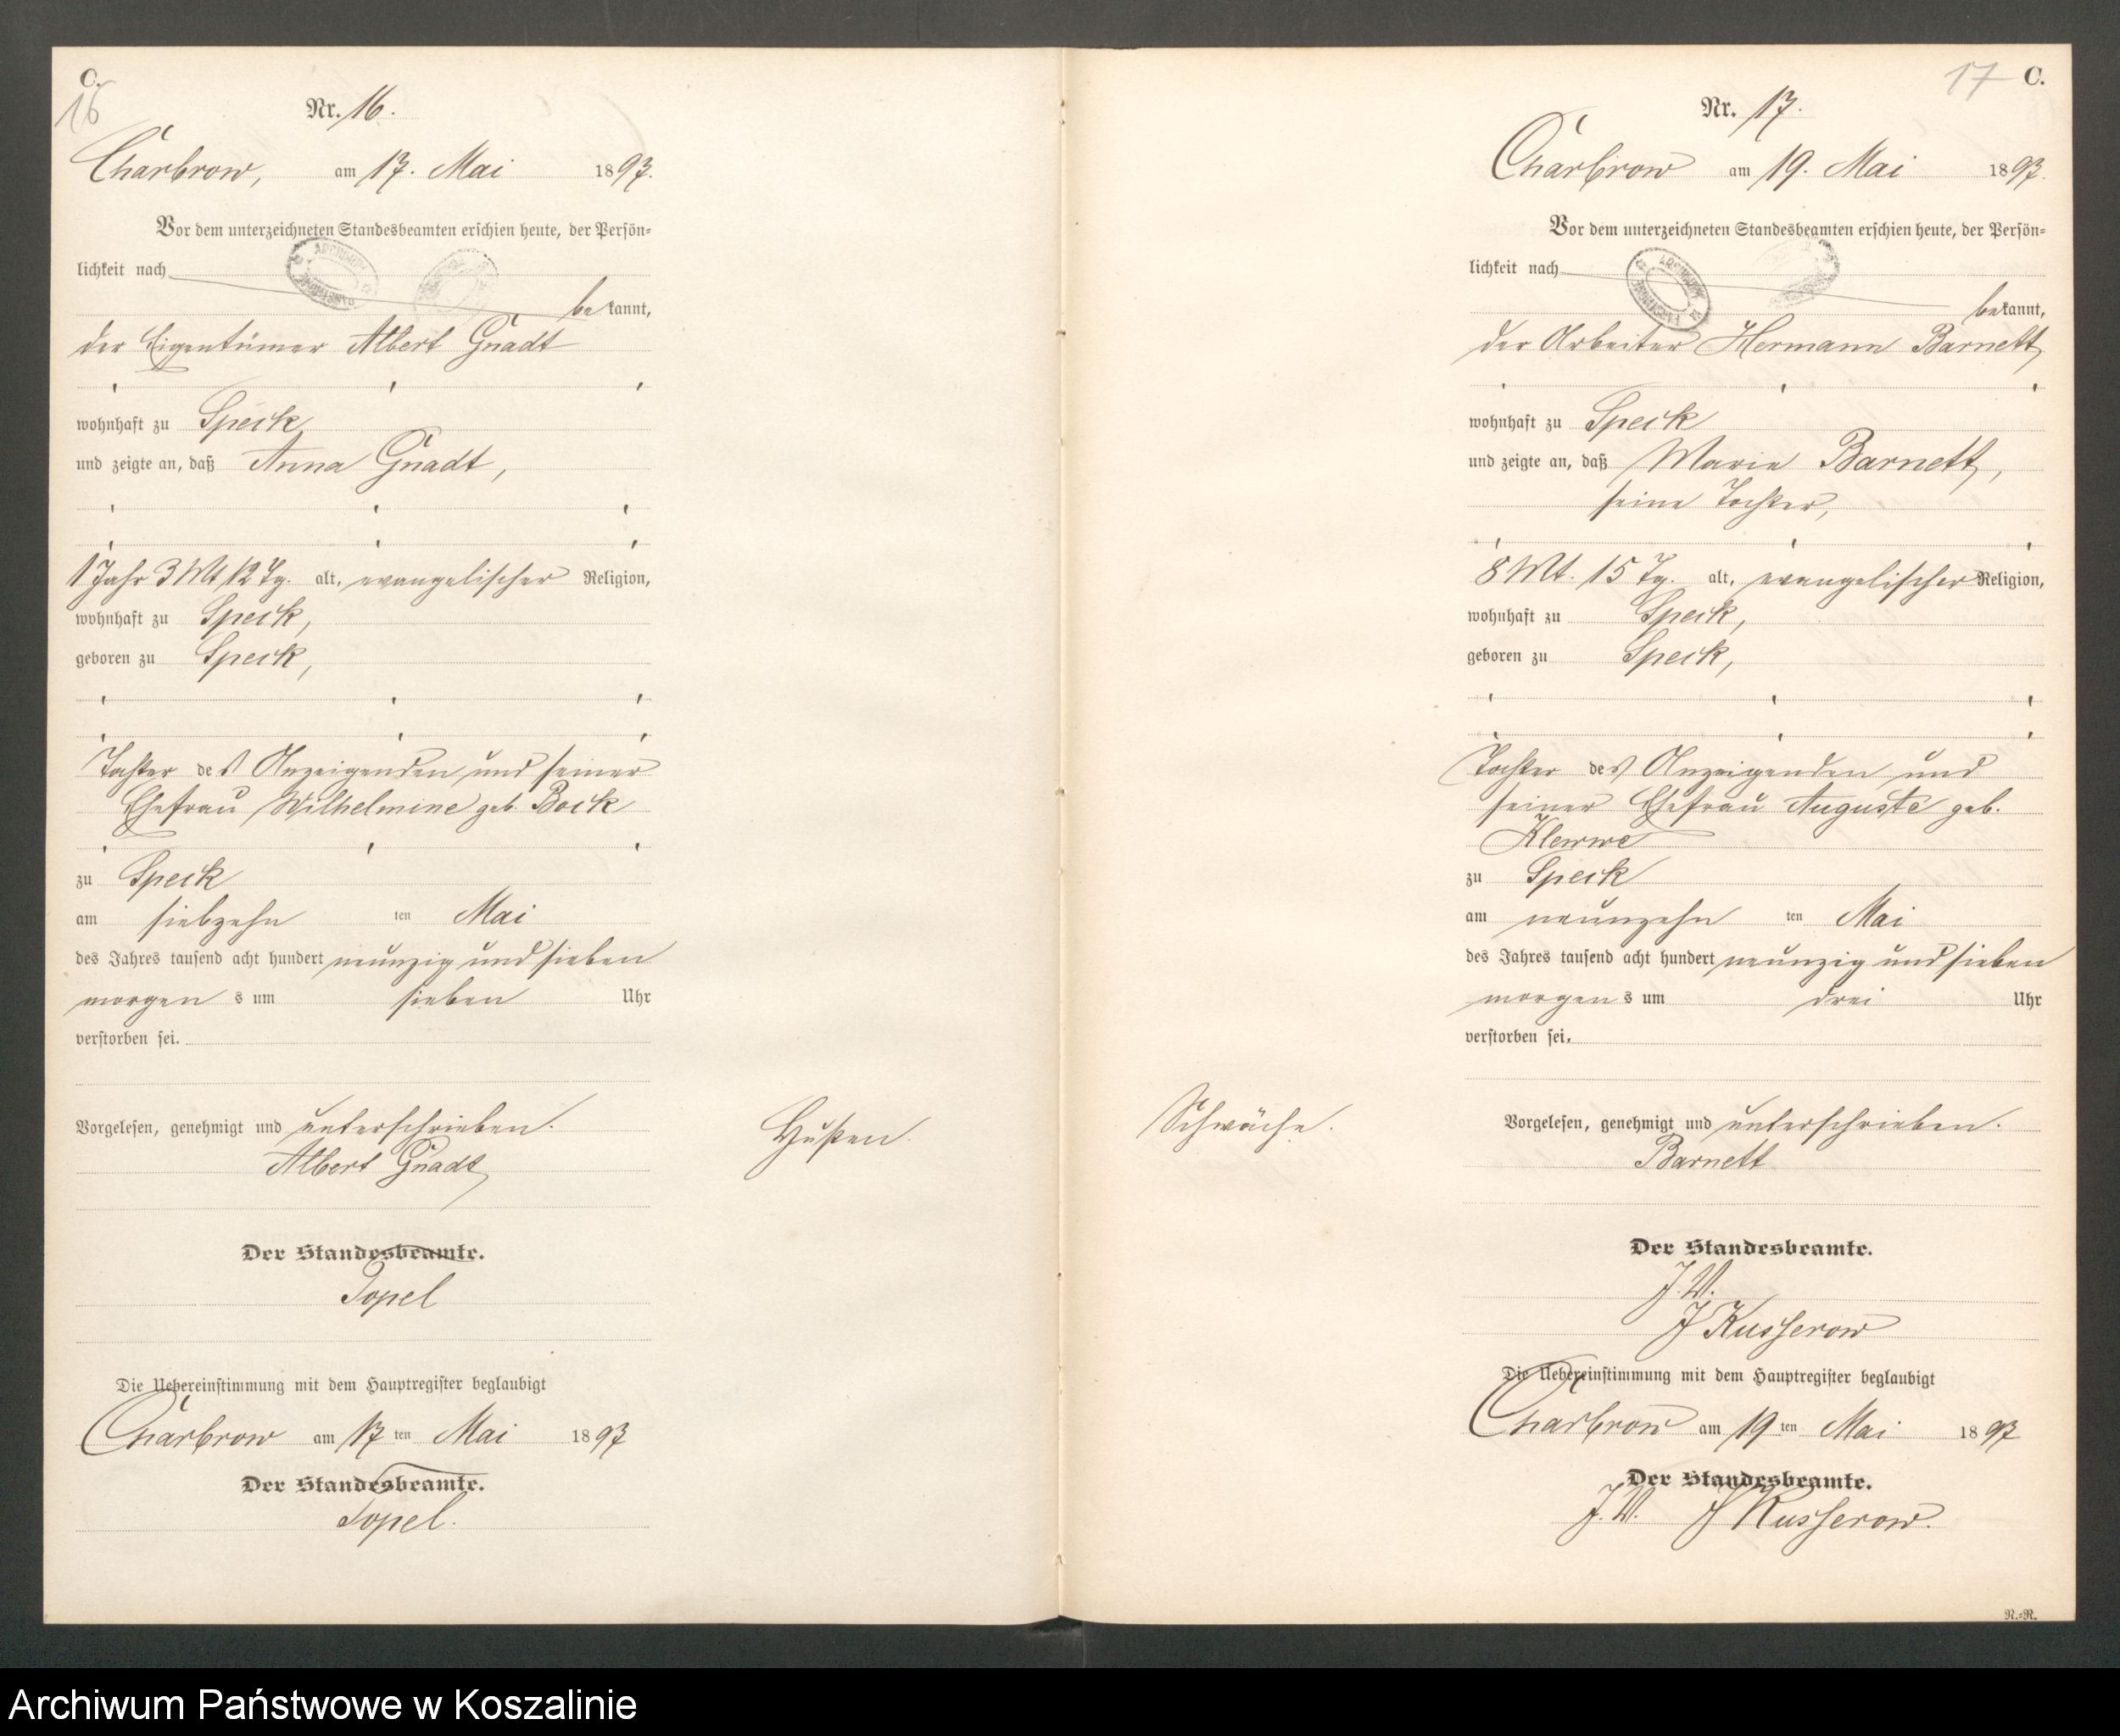 C.
16
Nr. 16.
Charbrow, am 17. Mai 1897.
Vor dem unterzeichneten Standesbeamten erschien heute, der Persön-
lichkeit nach
bekannt,
der Eigentümer Albert Gnadt
wohnhaft zu Speck
und zeigte an, daß Anna Gnadt,
1 Jahr 3 Mt 12 Tg. alt, evangelischer Religion,
wohnhaft zu Speck,
geboren zu Speck,
Tochter des Anzeigenden und seiner
Ehefrau Wilhelmine geb. Bock
zu Speck
am siebzehn ten Mai
des Jahres tausend acht hundert neunzig und sieben
morgens um sieben Uhr
verstorben sei.
Vorgelesen, genehmigt und unterschrieben.
Albert Gnadt
Husten.
Der Standesbeamte.
Topel
Die Uebereinstimmung mit dem Hauptregister beglaubigt
Charbrow am 17 ten Mai 1897
Der Standesbeamte.
Topel.
17 C.
Nr. 17.
Charbrow am 19. Mai 1897.
Vor dem unterzeichneten Standesbeamten erschien heute, der Persön-
lichkeit nach
bekannt,
der Arbeiter Hermann Barnett
wohnhaft zu Speck
und zeigte an, daß Marie Barnett,
seine Tochter,
8 Mt. 15 Tg. alt, evangelischer Religion,
wohnhaft zu Speck,
geboren zu Speck,
Tochter des Anzeigenden und
seiner Ehefrau Auguste geb.
Klewwe
zu Speck
am neunzehn ten Mai
des Jahres tausend acht hundert neunzig und sieben
morgens um drei Uhr
verstorben sei.
Schwäche.
Vorgelesen, genehmigt und unterschrieben.
Barnett
Der Standesbeamte.
J. V.
J Kusserow
Die Uebereinstimmung mit dem Hauptregister beglaubigt
Charbrow am 19 ten Mai 1897
Der Standesbeamte.
J. V. J Kusserow.
N.=R.
Archiwum Państwowe w Koszalinie